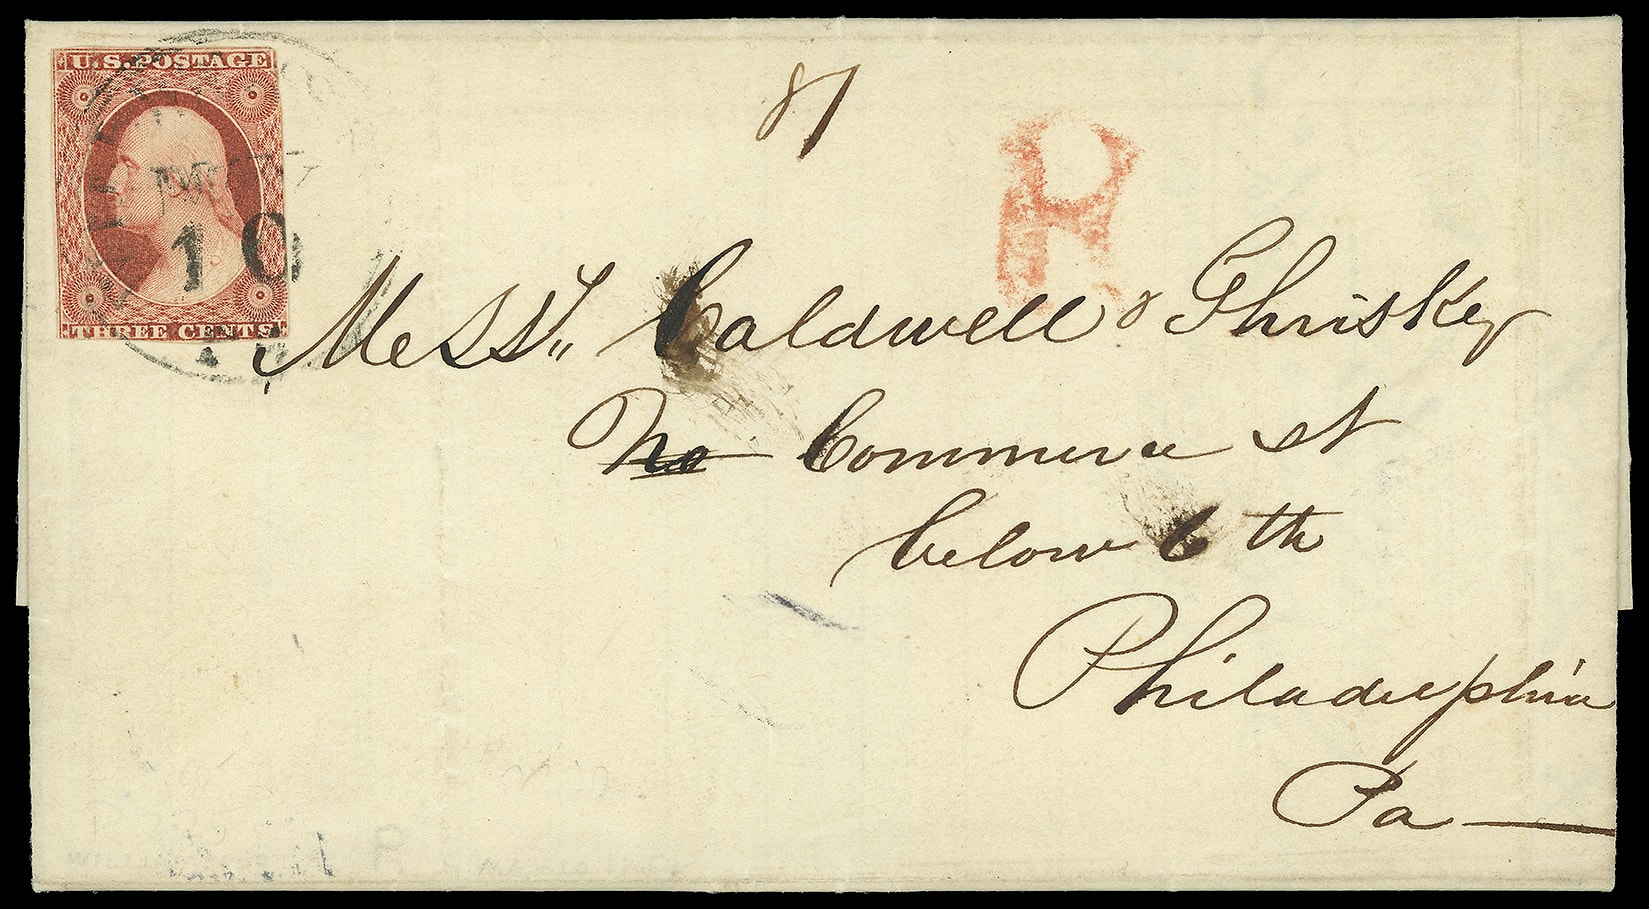 U.S. POSTAGE
THREE CENTS
10
87
R
Mess.rs Caldwell & Thriskey
No Commerce st
below 6 th
Philadelphia
Pa